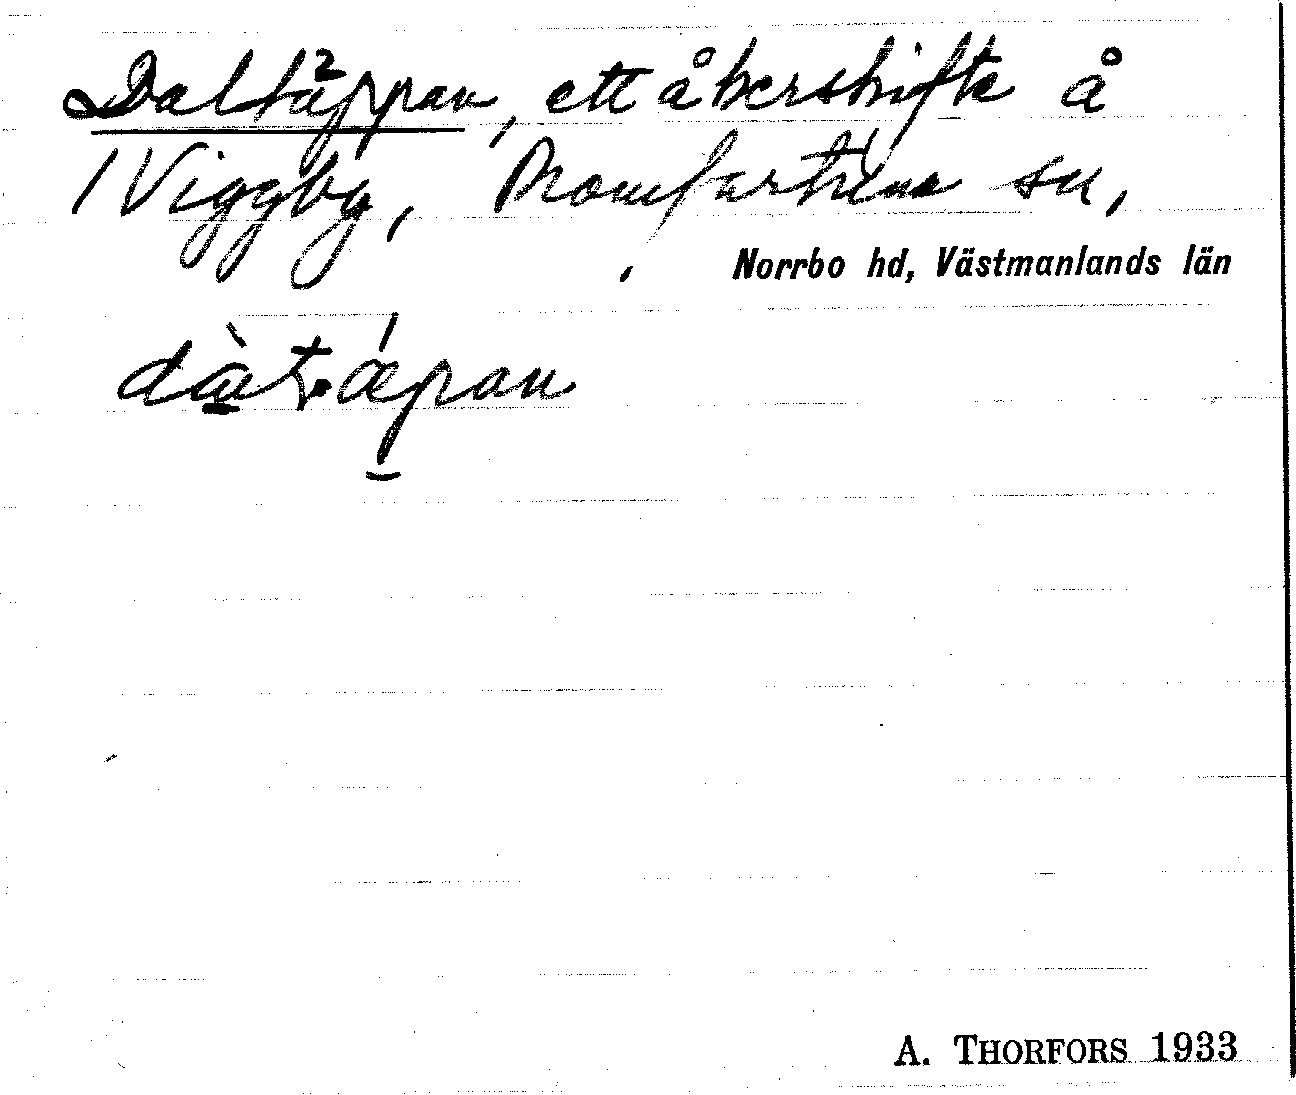 Daltäppan, ett åkerskifte å
/Viggby, Romfartuna sn,
Norrbo hd, Västmanlands län
dàt·ǽpan
A. THORFORS 1933